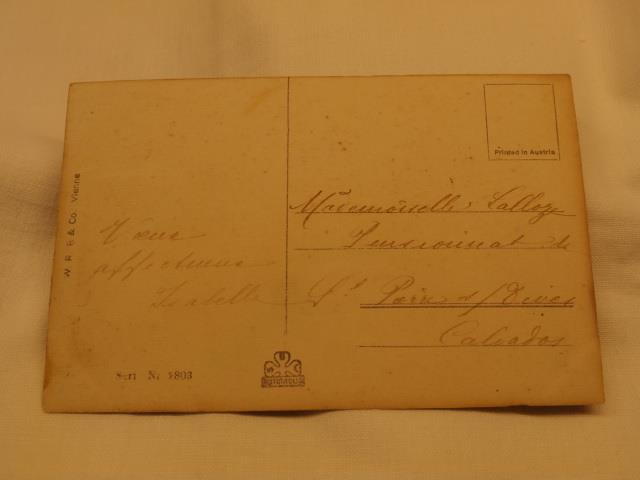 W. R. B & Co. Vienne
Vœux
affectueux
Isabelle
Seri Nr
Printed in Austria
Mademoiselle Lalloz
Pensionnat de
St Pierre s/ Dives
Calvados